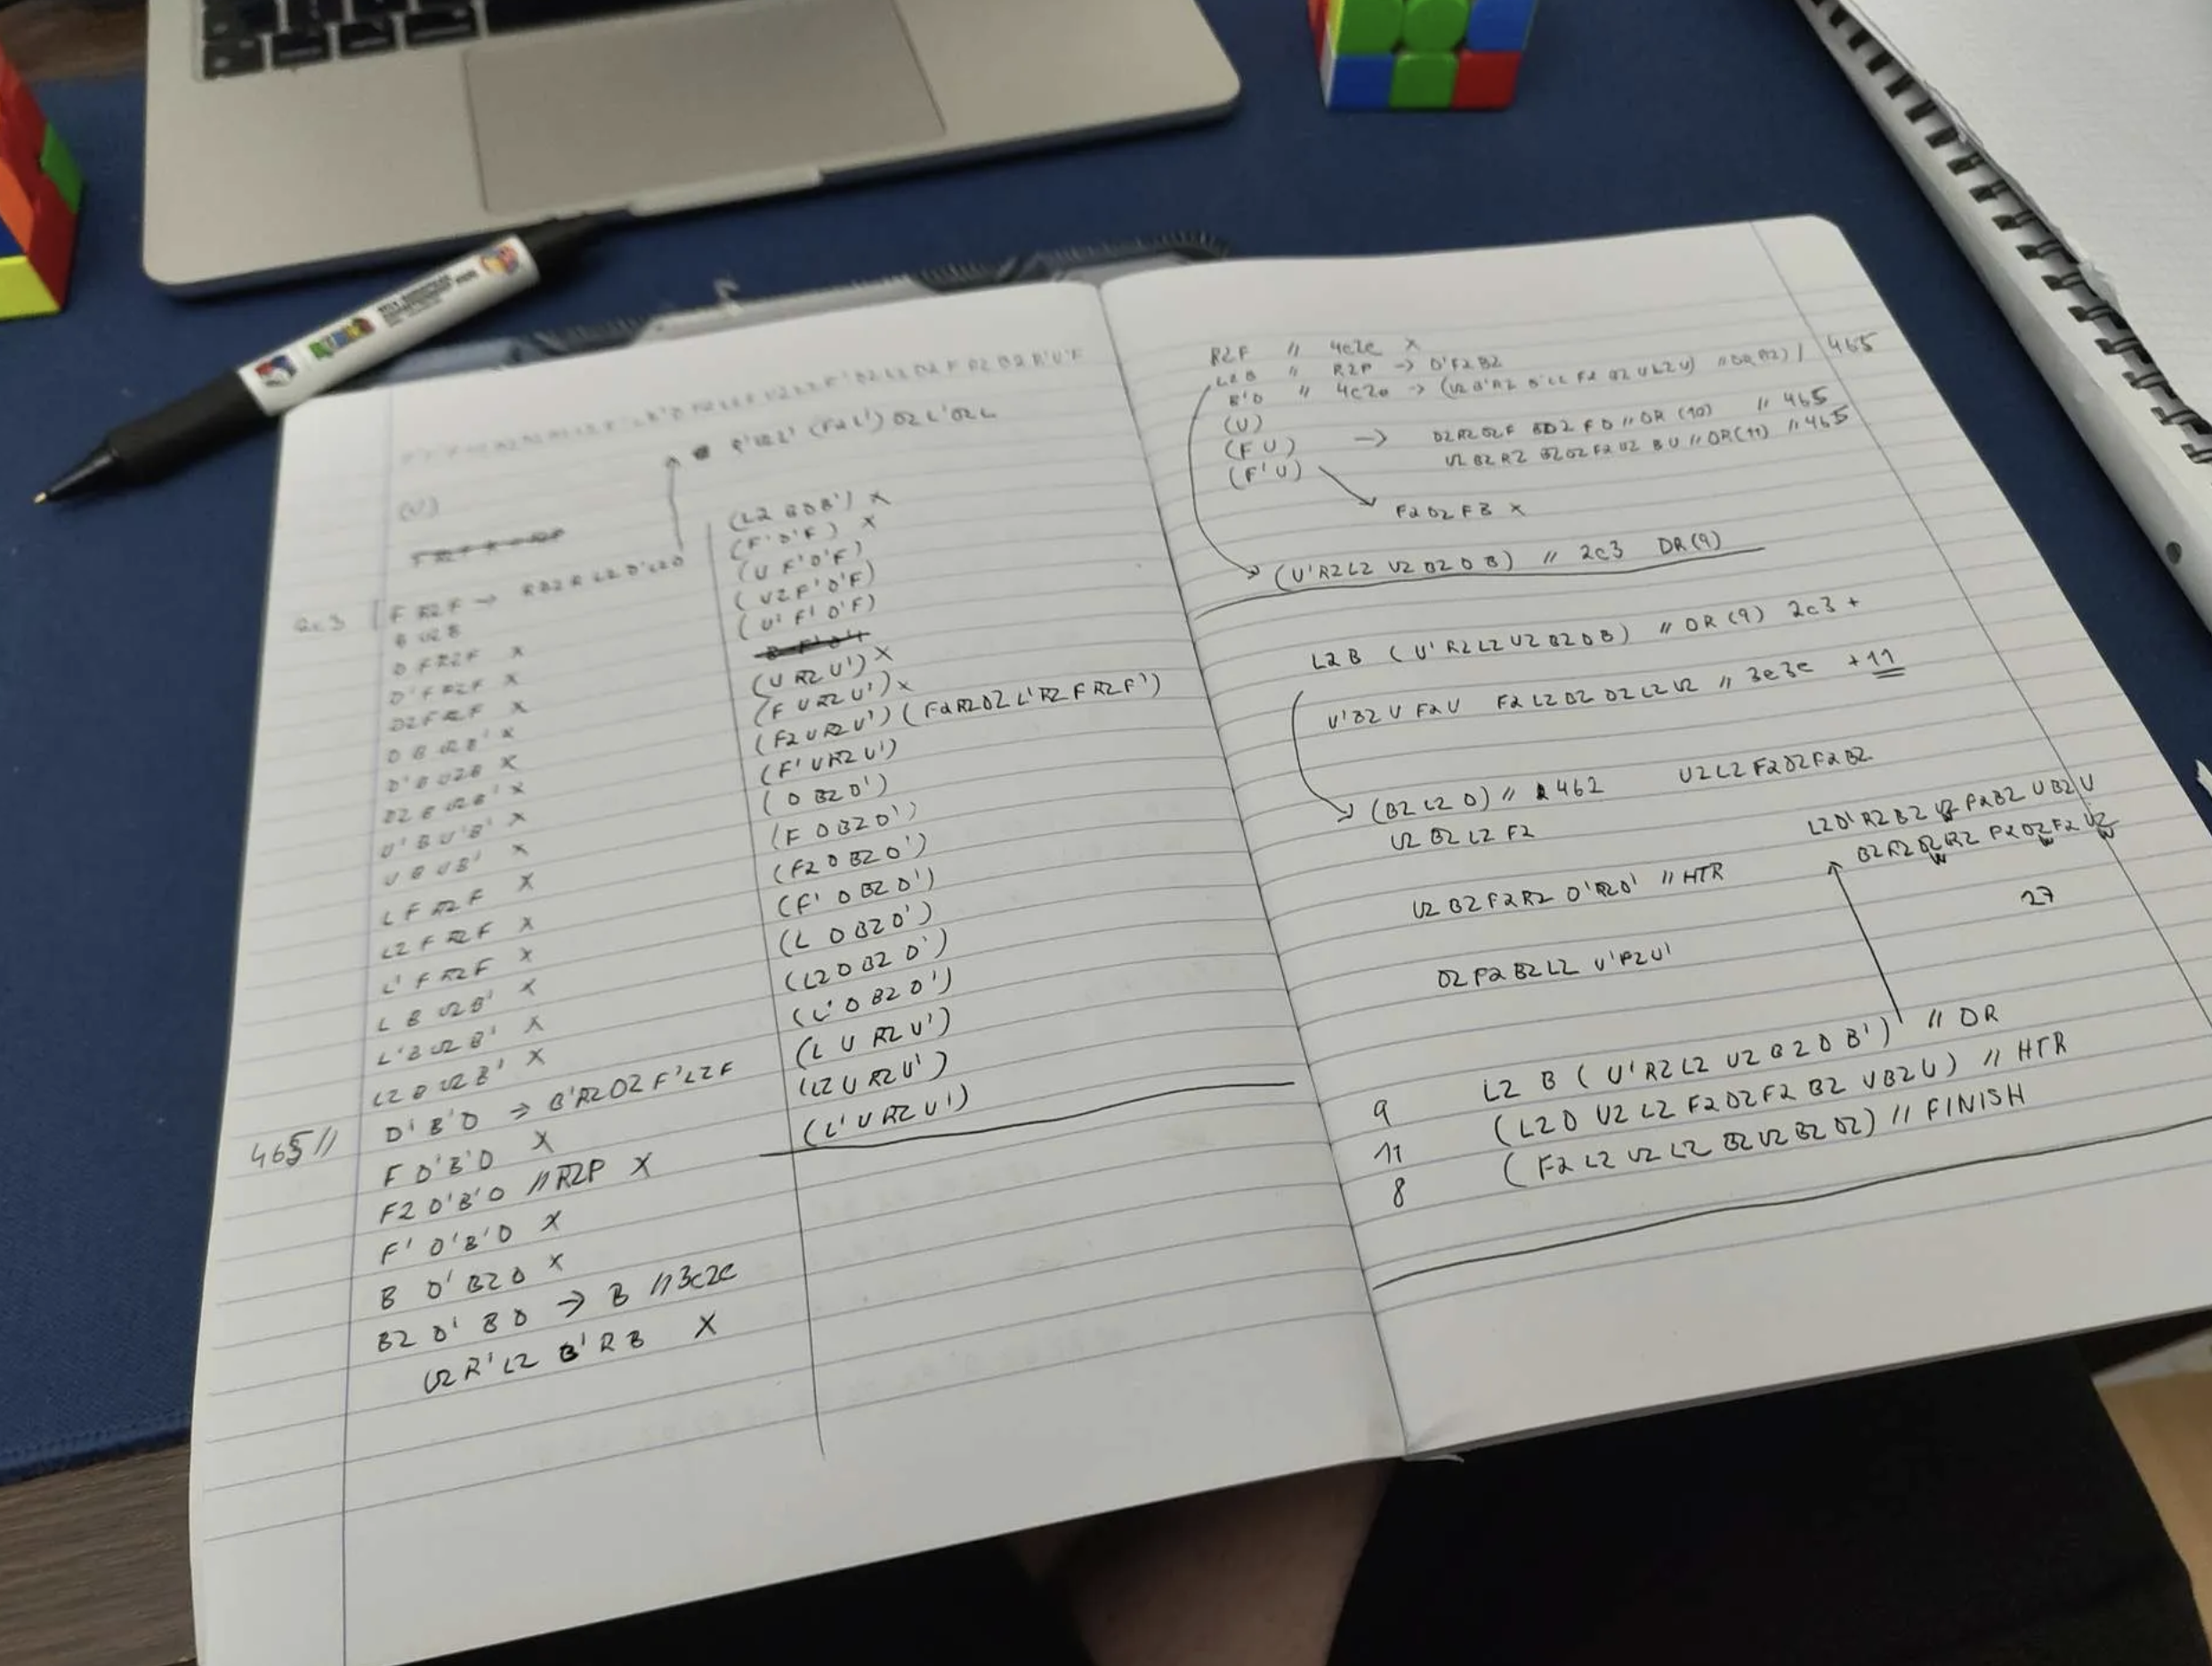 (U)
F R2 F → R D2 R L2 D' L2 D
2c3
B U2 B
D F R2 F X
D' F R2 F X
D2 F R2 F X
D B U2 B' X
D' B U2 B X
D2 B U2 B' X
U' B U' B' X
U B U B' X
L F R2 F X
L2 F R2 F X
L' F R2 F X
L B U2 B' X
L' B U2 B' X
L2 B U2 B' X
465 // D' B' D → B' R2 D2 F' L2 F
F D' B' D X
F2 D' B' D // RZP X
F' D' B' D X
B D' B2 D X
B2 D' B D → B // 3c2e
U2 R' L2 B' R B X
(L2 B D B') X
(F' D' F) X
(U F' D' F)
(U2 F' D' F)
(U' F' D' F)
(U R2 U') X
(F U R2 U') X
(F2 U R2 U') (F2 R2 D2 L' R2 F R2 F')
(F' U R2 U')
(D B2 D')
(F D B2 D')
(F2 D B2 D')
(F' D B2 D')
(L D B2 D')
(L2 D B2 D')
(L' D B2 D')
(L U R2 U')
(L2 U R2 U')
(L' U R2 U')
R2 F // 4c2e X
L2 B // RZP → D' F2 B2
(U)
(F U) →
(F' U)
// 465
U2 B2 R2 B2 D2 F2 U2 B U // DR (11) // 465
F2 D2 F B X
(U' R2 L2 U2 B2 D B) // 2c3 DR (9)
L2 B (U' R2 L2 U2 B2 D B) // DR (9) 2c3 +
U' B2 U F2 U F2 L2 D2 D2 L2 U2 // 3e3c + 11
(B2 L2 D) // 462 U2 L2 F2 D2 F2 B2
U2 B2 L2 F2
L2 D' R2 B2 U2 F2 B2 U B2 U
U2 B2 F2 R2 D' R2 D' // HTR
27
D2 F2 B2 L2 U' F2 U'
9 L2 B (U' R2 L2 U2 B2 D B') // DR
11 (L2 D U2 L2 F2 D2 F2 B2 U B2 U) // HTR
8 (F2 L2 U2 L2 B2 U2 B2 D2) // FINISH